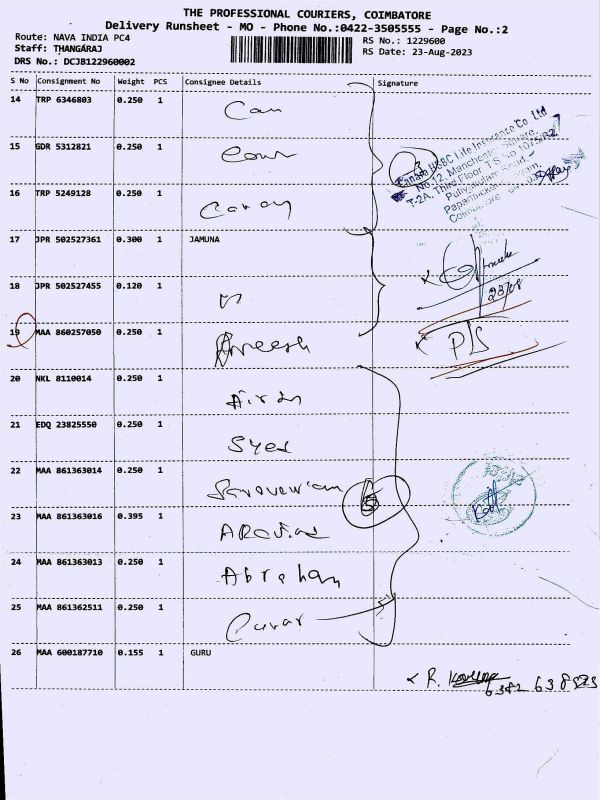 THE PROFESSIONAL COURIERS, COIMBATORE
Delivery Runsheet - MO - Phone No.:0422-3505555 - Page No.:2
Route: NAVA INDIA PC4
RS No.: 1229600
Staff: THANGARAJ
RS Date: 23-Aug-2023
DRS No.: DCJB122960002
S No Consignment No Weight PCS Consignee Details Signature
14 TRP 6346803 0.250 1 Can
15 GDR 5312821 0.250 1
16 TRP 5249128 0.250 1
Canara HSBC Life Insurance Co. Ltd
No 12, Manchester Square,
T-2A, Third Floor, T.S
17 JPR 502527361 0.300 1 JAMUNA
18 JPR 502527455 0.120 1
23/08
19 MAA 860257050 0.250 1
P/S
20 NKL 8110014 0.250 1
21 EDQ 23825550 0.250 1 Syed
22 MAA 861363014 0.250 1
23 MAA 861363016 0.395 1
24 MAA 861363013 0.250 1 Abraham
25 MAA 861362511 0.250 1
26 MAA 600187710 0.155 1 GURU
R.